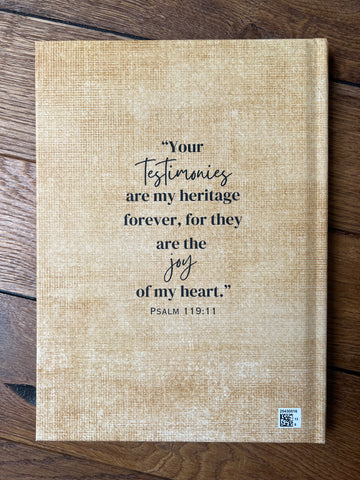 “Your
Testimonies
are my heritage
forever, for they
are the
joy
of my heart.”
Psalm 119:11